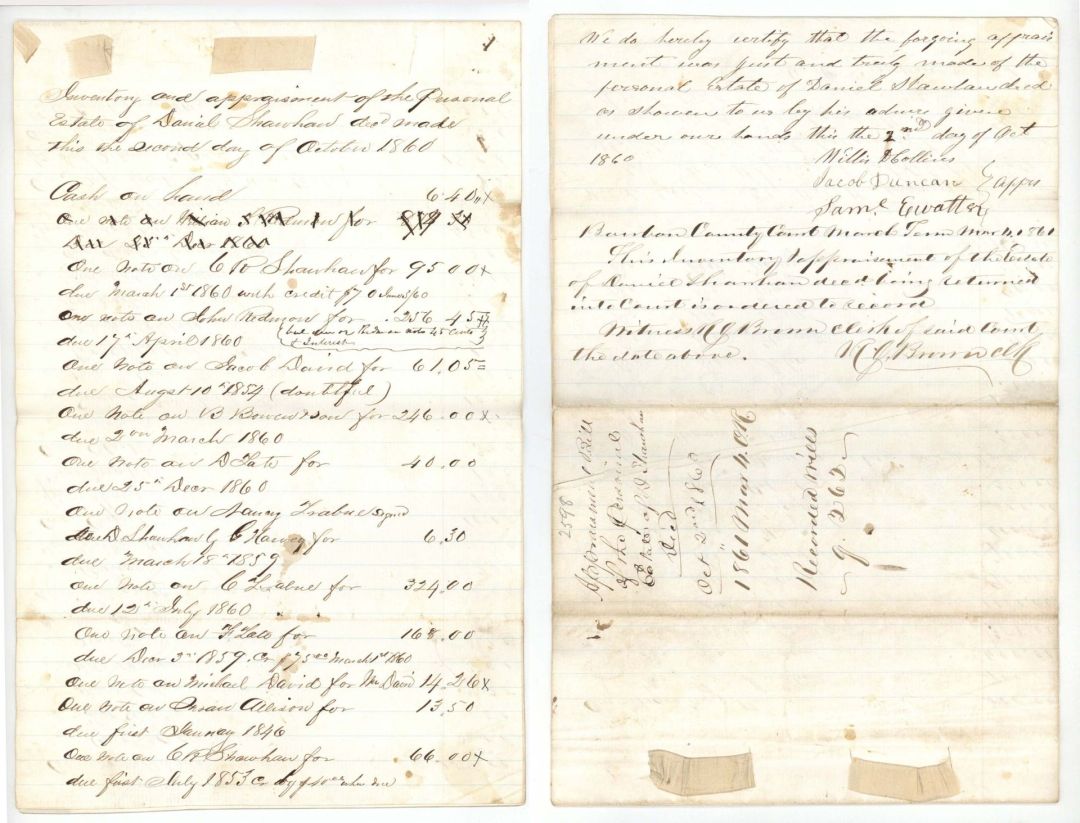 1
Inventory and appraisement of the Personal
Estate of Daniel Shawhan decd made
this the second day of October 1860
Cash on hand 6.40 x
One note on for
One Note on C R Shawhan for 95 00 x
due March 1st 1860 with credit $70 60
one note on John Redmon for .256 45
due 17th April 1860
& Interest
One Note on Jacob David for 61,05
due Augst 10th 1854 (doubtful)
One Note on B Bowen & Son for 246.00 x
due 2 March 1860
One Note on D Tate for 40.00
due 25th Decr 1860
One Note on Nancy Trabue signed
D Shawhan & C Harvey for 6.30
due March 18th 1859
One Note on C Trabue for 324.00
due 12th July 1860
One Note on F. Tate for 168.00
due Decr 3rd 1859. Cr $75 March 1st 1860
One Note on Michael David for 14.26 x
One Note on Allison for 13.50
due first January 1846
One Note on C R Shawhan for 66.00 x
due first July 1853 Cr by $10 when due
We do hereby certify that the forgoing apprais
ment was just and truly made of the
personal Estate of Daniel Shawhan decd
as shown to us by his given
under our hands this the 2nd day of Oct
1860
Willis D Collins
Jacob Duncan
Saml Ewalt
Bourbon County Court March Term Mar 4, 1861
This Inventory & appraisement of the Estate
of Daniel Shawhan decd being returned
into Court is ordered to record
Witness R C Brown clerk of said Court
the date above. R C Brown Clk
2598
Appraisment Bill
of the Personal
Estate of D Shawhan
Decd
Oct 2nd 1860
1861 Mar 4. OR
Recorded Wills
Q. 262